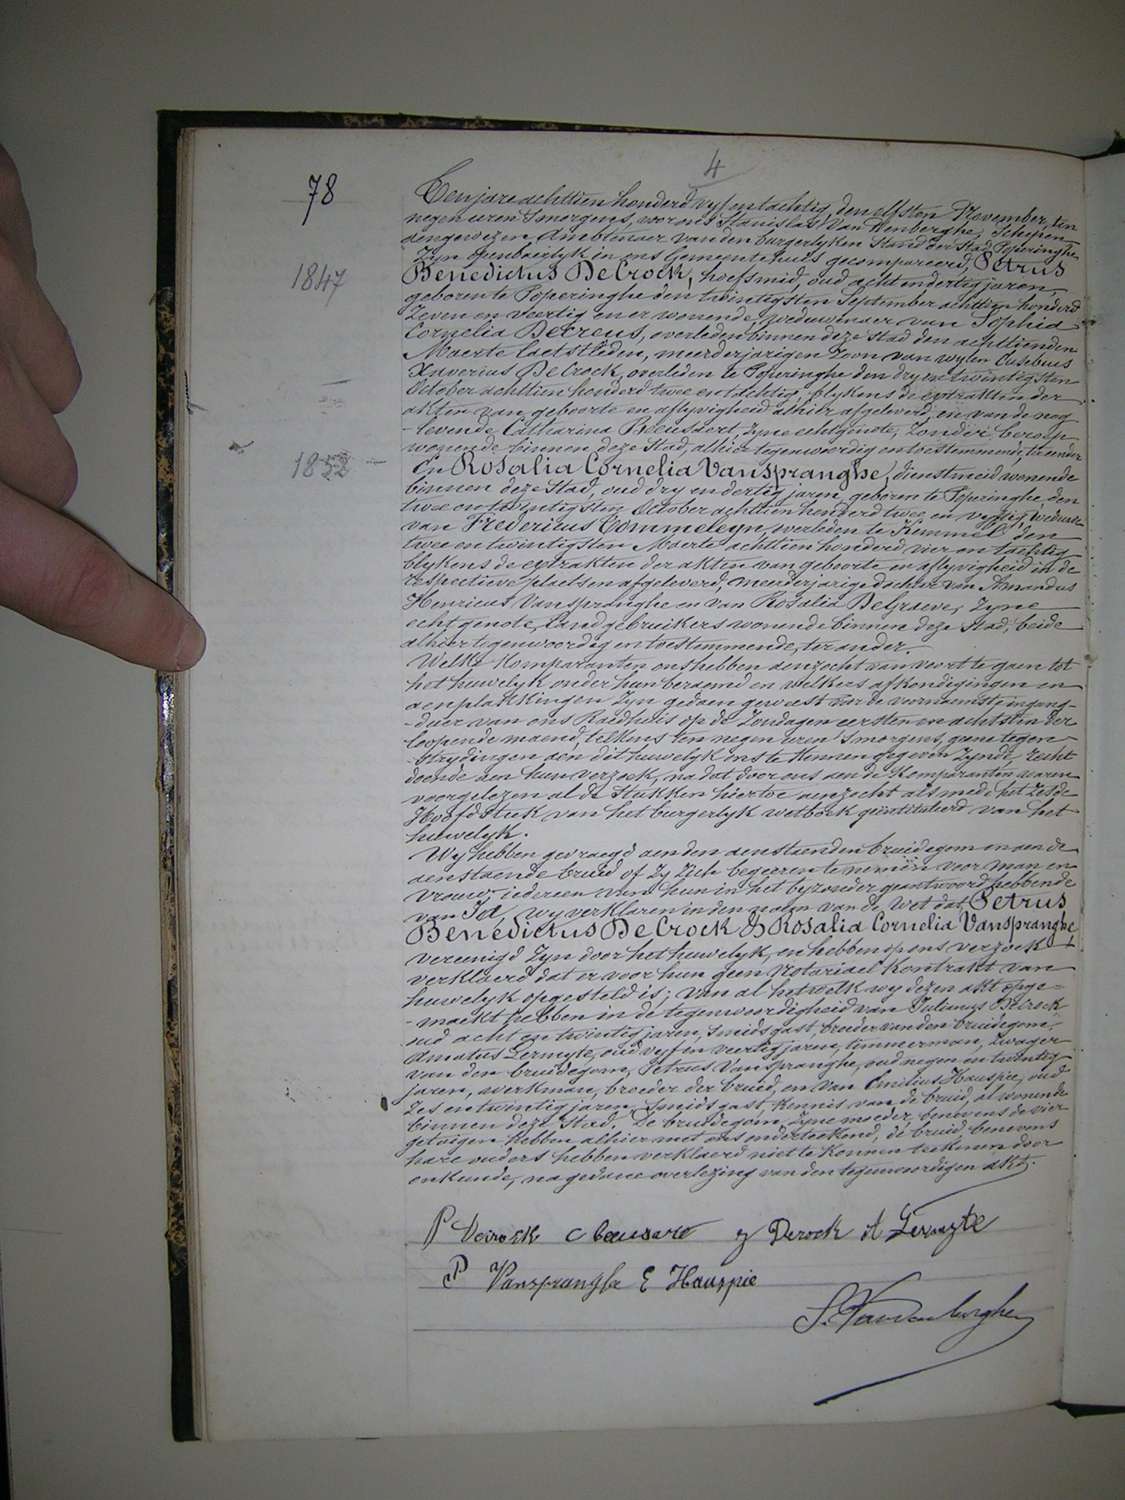 4
78
Ten jare achttien honderd vyf en tachtig, den elfsten November, ten
negen uren 's morgens, voor ons Stanislas Van Renberghe, Schepen
aengewezen Ambtenaer van den burgerlyken Stand der Stad Poperinghe
zyn openbaerlyk in ons Gemeentehuis gecompareerd, Petrus
1847
Benedictus DeCrock, hoefsmid, oud acht en dertig jaren,
geboren te Poperinghe den twintigsten September achttien honderd
zeven en veertig en er wonende, weduwenaer van Sophia
Cornelia Decreus, overleden binnen deze Stad den achttienden
Maerte laetstleden, meerderjarigen Zoon van wylen Eusebius
Xaverius DeCrock, overleden te Poperinghe den dry en twintigsten
October achttien honderd twee en tachtig, blykens de extrakten der
akten van geboorte en aflyvigheid alhier afgeleverd, en van de nog
-levende Catharina Beussaert, zyne echtgenote, zonder beroep
wonende binnen deze Stad, alhier tegenwoordig en toestemmende, ter eenre
1852
En Rosalia Cornelia Vanspranghe, dienstmeid wonende
binnen deze Stad, oud dry en dertig jaren, geboren te Poperinghe, den
twee en twintigsten October achttien honderd twee en vyftig, weduwe
van Fredericus Commeleyn, overleden te Kemmel den
twee en twintigsten Maerte achttien honderd vier en tachtig
blykens de extrakten der akten van geboorte en aflyvigheid in de
respectieve plaetsen afgeleverd, meerderjarige dochter van Amandus
Henricus Vanspranghe en van Rosalia DeGraeve, zyne
echtgenote, Landgebruikers wonende binnen deze Stad, beide
alhier tegenwoordig en toestemmende, ter ander.
Welke Komparanten ons hebben aenzocht van voort te gaen tot
het huwelyk onder hun beraemd en welkers afkondigingen en
aenplakkingen zyn gedaen geweest voor de voornaemste ingang-
-deur van ons Raedhuis op de Zondagen eersten en achtsten der
loopende maend, telkens ten negen uren 's morgens, geene tegen-
-strydingen aen dit huwelyk ons te kennen gegeven zynde, recht
doende aen hun verzoek, na dat door ons aen de Komparanten waren
voorgelezen al de Stukken hiertoe aenzocht als mede het zesde
Hoofdstuk van het burgerlyk wetboek geintituleerd van het
huwelyk.
Wy hebben gevraegd aen den aenstaenden bruidegom en aen de
aenstaende bruid of zy zich begeeren te nemen voor man en
vrouw iedereen van hun in het byzonder geantwoord hebbende
van Ja, wy verklaren in den naem van de Wet dat Petrus
Benedictus DeCrock & Rosalia Cornelia Vanspranghe
vereenigd zyn door het huwelyk, en hebben op ons verzoek
verklaerd dat er voor hun geen Notariael Kontrakt van
huwelyk opgesteld is; van al hetwelk wy dezen akt opge-
-maekt hebben in de tegenwoordigheid van Julianus Decrock
oud acht en twintig jaren, smids gast, broeder van den bruidegom,
Amatus Lermyte, oud vyf en veertig jaren, timmerman, zwager
van den bruidegom, Petrus Vanspranghe, oud negen en twintig
jaren, werkman, broeder der bruid, en van Emilius Hauspie, oud
zes en twintig jaren, smids gast, kennis van de bruid, al wonende
binnen deze Stad. De bruidegom, zyne moeder, benevens de vier
getuigen hebben alhier met ons onderteekend, de bruid benevens
hare ouders hebben verklaerd niet te kennen teekenen door
onkunde, na gedane overlezing van den tegenwoordigen akt.
P Decrock C Beussare J Decrock A Lermyte
P Vanspranghe E Hauspie
S. Vandenberghe